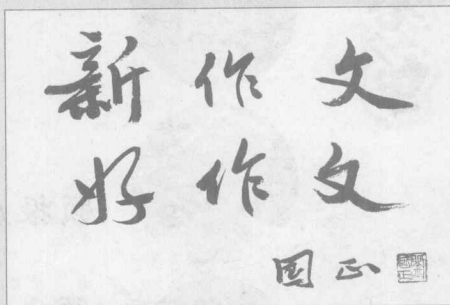 新作文
好作文
国正